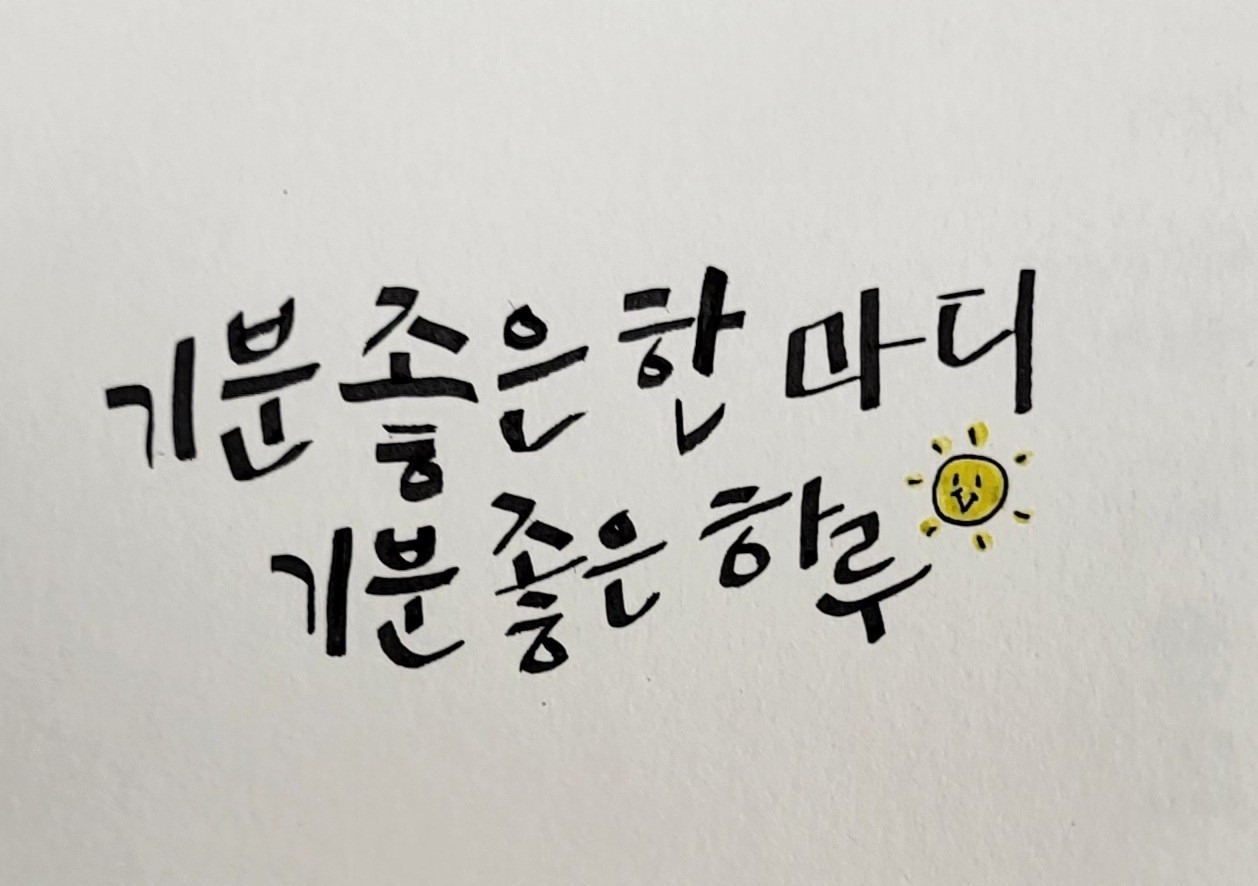 기분 좋은 한 마디
기분 좋은 하루